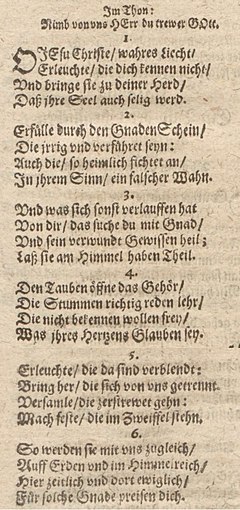 Im Thon:
Nimb von vns HErr du trewer GOtt.
1.
OJEsu Christe/ wahres Liecht/
Erleuchte/ die dich kennen nicht/
Vnd bringe sie zu deiner Herd/
Daß jhre Seel auch selig werd.
2.
Erfülle durch den Gnaden Schein/
Die jrrig vnd verführet seyn:
Auch die/ so heimlich fichtet an/
In jhrem Sinn/ ein falscher Wahn.
3.
Vnd was sich sonst verlauffen hat
Von dir/ das suche du mit Gnad/
Vnd sein verwundt Gewissen heil;
Laß sie am Himmel haben Theil.
4.
Den Tauben öffne das Gehör/
Die Stummen richtig reden lehr/
Die nicht bekennen wollen frey/
Was jhres Hertzens Glauben sey.
5.
Erleuchte/ die da sind verblendt:
Bring her/ die sich von vns getrennt.
Versamle/ die zerstrewet gehn:
Mach feste/ die im Zweiffel stehn.
6.
So werden sie mit vns zugleich/
Auff Erden vnd im Himmelreich/
Hier zeitlich vnd dort ewiglich/
Für solche Gnade preisen dich.